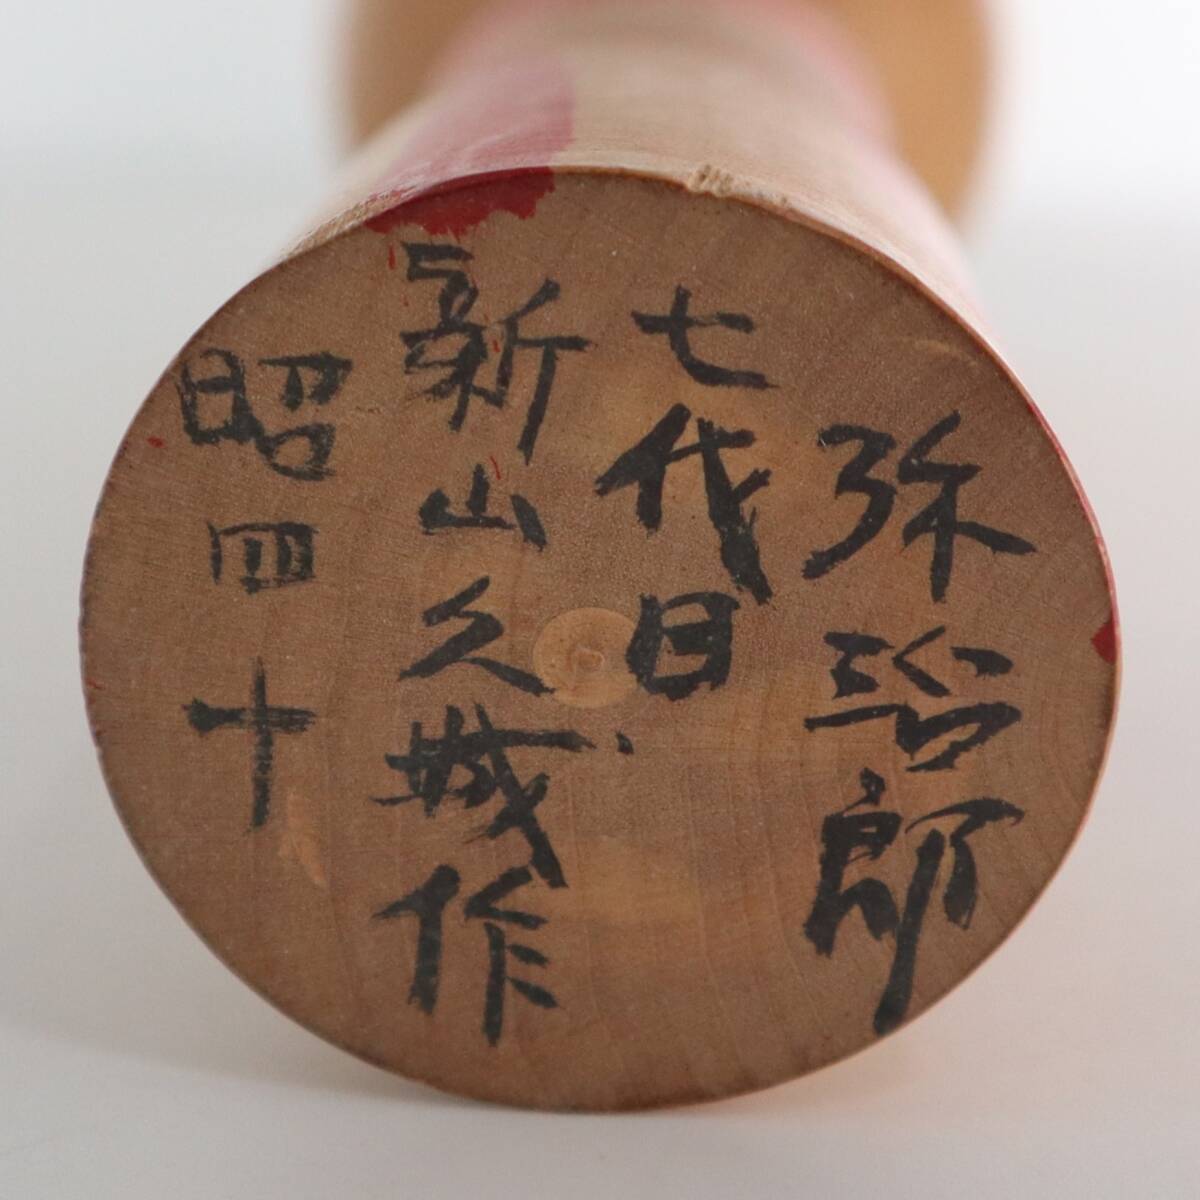 弥治郎
七代目
新山久城作
昭四十